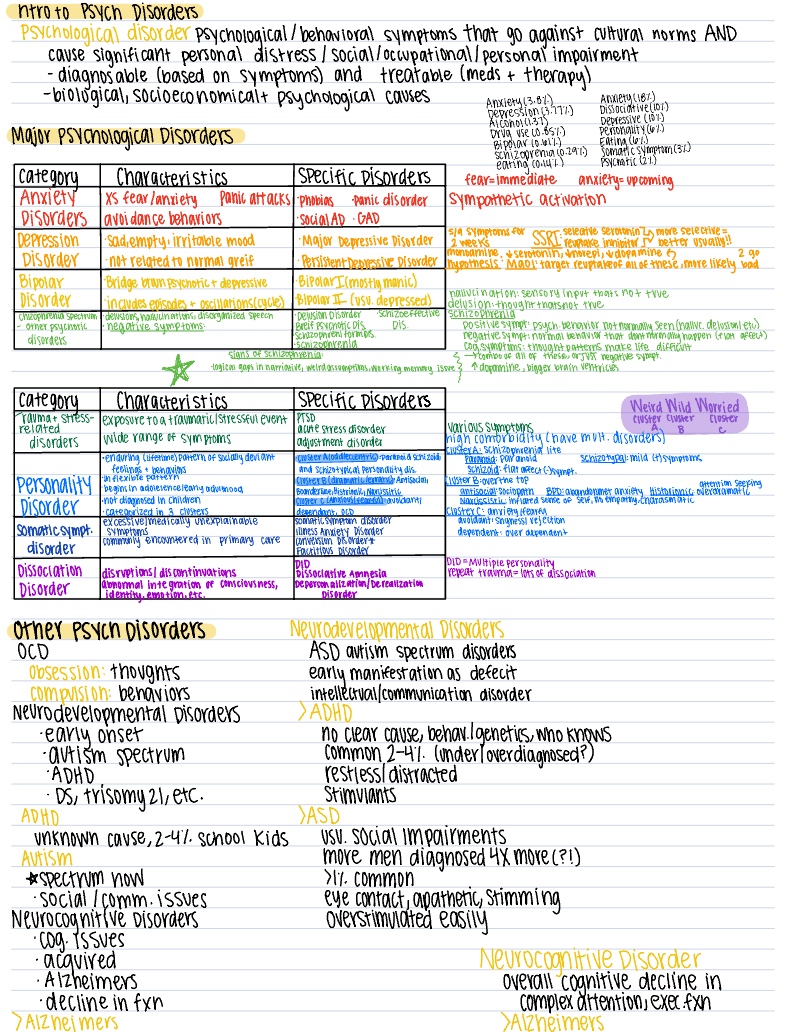 ntro to Psych Disorders
Psychological disorder psychological/behavioral symptoms that go against cultural norms AND
cause significant personal distress/social/occupational/personal impairment
- diagnosable (based on symptoms) and treatable (meds + therapy)
- biological, socioeconomical + psychological causes
Anxiety (3.8%)
Depression (3.77%)
Alcohol (1.37)
Drug use (0.85%)
Bipolar (0.61%)
Schizophrenia (0.29%)
eating (0.14%)
Anxiety (18%)
Dissociative (10%)
Depressive (10%)
Personality (6%)
Eating (6%)
Somatic symptom (3%)
Psychotic (2%)
Major Psychological Disorders
Category Characteristics Specific Disorders
fear=immediate anxiety=upcoming
Anxiety Disorders
XS fear/anxiety Panic attacks
avoidance behaviors
·Phobias ·Panic disorder
·Social AD ·GAD
Sympathetic activation
Depression Disorder
·Sad, empty, irritable mood
·not related to normal greif
·Major Depressive Disorder
·Persistent Depressive Disorder
5/9 symptoms for 2 weeks
SSRI: selective serotonin reuptake inhibitor
more selective = better usually!!
monoamine hypothesis: ↓serotonin, ↓norepi, ↓dopamine
MAOI: target reuptake of all of these, more likely 2 go bad
Bipolar Disorder
·Bridge b/wn psychotic + depressive
includes episodes + oscillations (cycle)
·Bipolar I (mostly manic)
Bipolar II - (usu. depressed)
chizophrenia spectrum
- other psychotic disorders
·delusions, hallucinations, disorganized speech
·negative symptoms:
·Delusion Disorder Schizoeffective DIS.
Breif Psychotic DIS.
Schizophreniform DIS.
·schizophrenia
hallucination: sensory input thats not true
delusion: thought thats not true
schizophrenia
positive sympt: psych behavior not normally seen (halluc. delusion etc)
negative sympt: normal behavior that dont normally happen (flat affect)
cog. symptoms: thought patterns make life difficult
→combo of all of these, or just negative sympt.
↑dopamine, bigger brain ventricles
signs of schizophrenia:
·logical gaps in narrative, weird assumptions, working memory issues
Category Characteristics Specific Disorders
Weird Wild Worried
Cluster A Cluster B Cluster C
Trauma + stress-related disorders
exposure to a traumatic/stressful event
wide range of symptoms
PTSD
acute stress disorder
adjustment disorder
Various symptoms
high comorbidity (have mult. disorders)
Personality Disorder
·enduring (lifetime) pattern of socially deviant feelings + behaviors
·inflexible pattern
·begins in adolescence/early adulthood
·not diagnosed in children
·categorized in 3 clusters
Cluster A (odd/eccentric): paranoid & schizoid and schizotypal personality dis.
Cluster B (dramatic/): Antisocial, Borderline, Histrionic, Narcissitic
Cluster C (Anxious/fearful): avoidant/dependant, OCD
Cluster A: Schizophrenia lite
Paranoid: paranoid schizotypal: mild (+) symptoms
Schizoid: flat affect (-) sympt.
Cluster B: over the top
antisocial: sociopath BPD: abandonment anxiety Historionic: overdramatic attention seeking
Narcissistic: inflated sense of self, no empathy, charasmatic
Cluster C: anxiety, fearful
avoidant: shyness/rejection
dependent: over dependent
Somatic sympt. disorder
excessive/medically unexplainable symptoms
commonly encountered in primary care
Somatic symptom disorder
Illness Anxiety Disorder
Conversion Disorder +
Factitious Disorder
Dissociation Disorder
disruptions/discontinuations
abnormal integration of consciousness, identity, emotion, etc.
DID
Dissociative Amnesia
Depersonalization/Derealization Disorder
DID = Multiple personality
repeat trauma = lots of dissociation
Other Psych Disorders
OCD
obsession: thoughts
compulsion: behaviors
Neurodevelopmental Disorders
·early onset
·autism spectrum
·ADHD
·DS, trisomy 21, etc.
ADHD
unknown cause, 2-4% school kids
Autism
★spectrum now
·social/comm. issues
Neurocognitive Disorders
·cog. issues
·acquired
·Alzheimers
·decline in fxn
>Alzheimers
Neurodevelopmental Disorders
ASD autism spectrum disorders
early manifestation as defecit
intellectual/communication disorder
>ADHD
no clear cause, behav./genetics, who knows
common 2-4% (under/overdiagnosed?)
restless/distracted
stimulants
>ASD
usu. social impairments
more men diagnosed 4X more (?!)
>1% common
eye contact, apathetic, stimming
overstimulated easily
Neurocognitive Disorder
overall cognitive decline in
complex attention, exec. fxn
>Alzheimers